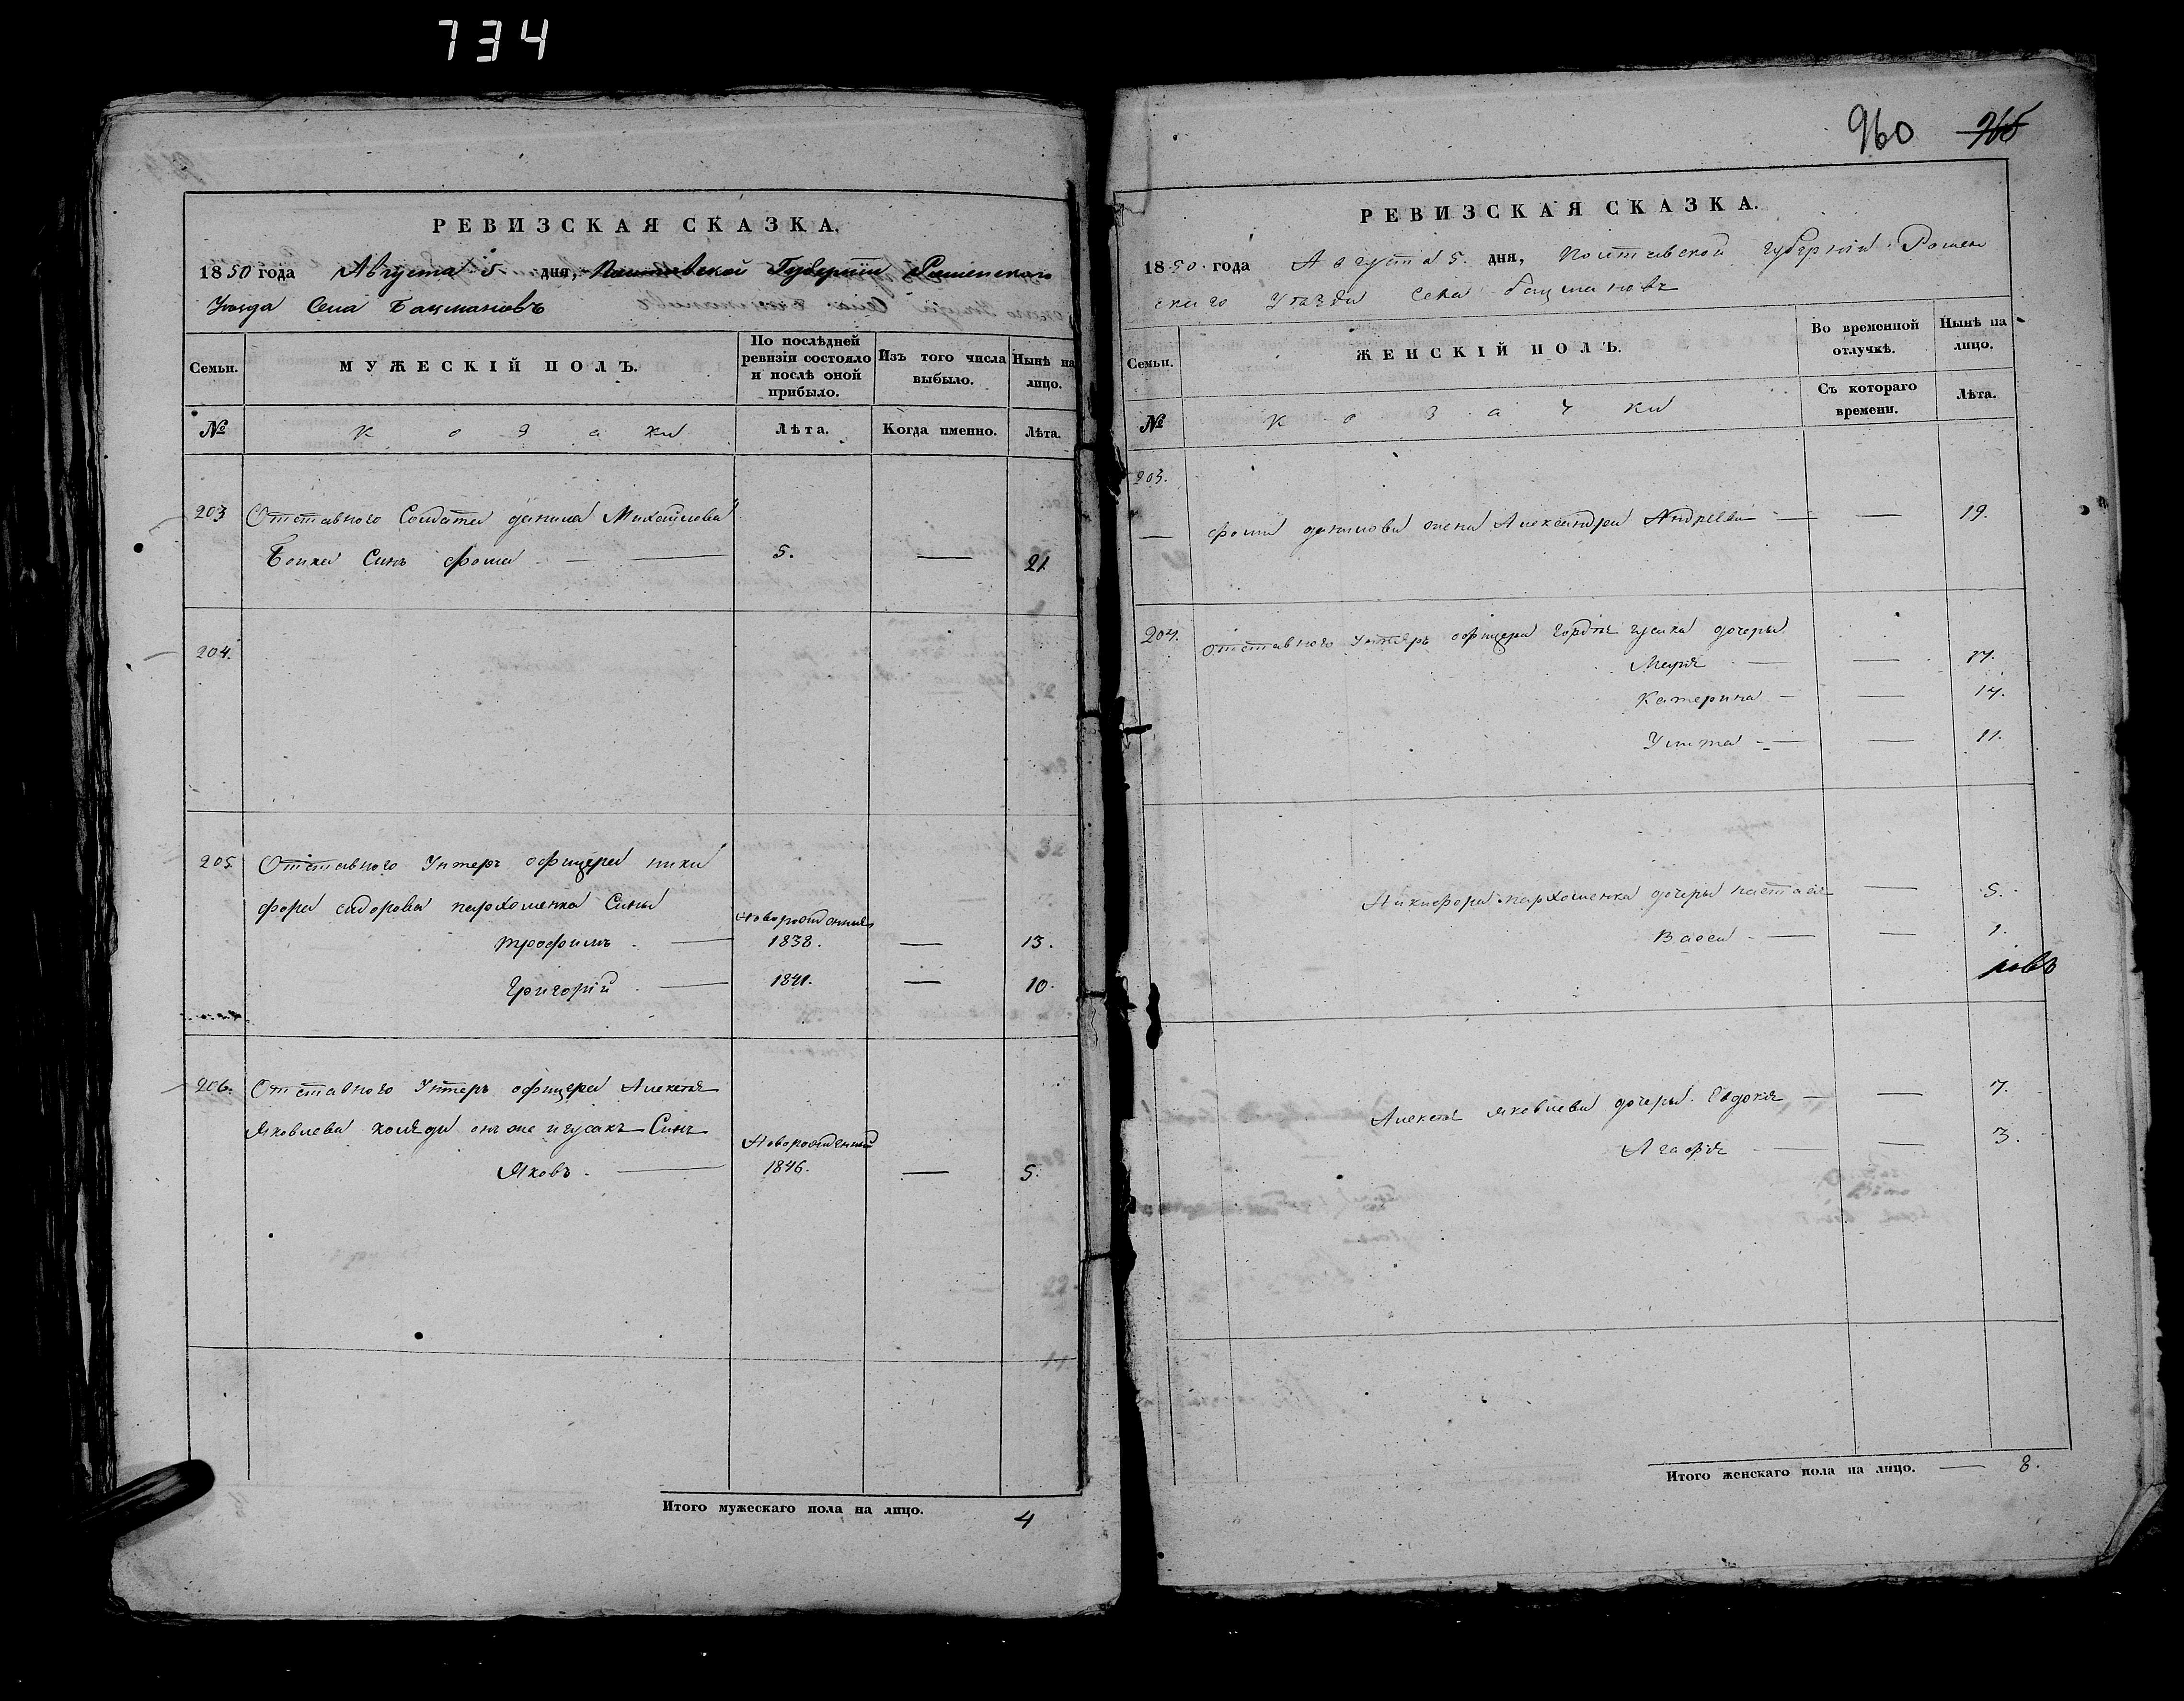 734
РЕВИЗСКАЯ СКАЗКА.
1850 года Августа 5 дня, Полтавской Губернии Роменскаго
Уезда Села Бацмановъ
Семьи.
МУЖЕСКІЙ ПОЛЪ.
По послѣдней ревизіи состояло и послѣ оной прибыло.
Изъ того числа выбыло.
Нынѣ на лицо.
№
Козаки
Лѣта.
Когда именно.
Лѣта.
203 Отставного Солдата данила Михайлова
Сынъ фома 5. — 21
204.
205 Отставного Унтеръ офицера ники
фора сидорова пархоменка Сины
Новорожденные
трофимъ 1838. — 13.
Григорій 1841. — 10.
206. Отставного Унтеръ офицера Алексея
Яковлева коляди онъ же и гусакъ Синъ
Новорожденный
Яковъ 1846. — 5.
Итого мужескаго пола на лицо. 4
960 965
РЕВИЗСКАЯ СКАЗКА.
1850 года Августа 5. дня, Полтавской губерніи Ромен
скаго Уезда Села бацмановъ
Семьи.
ЖЕНСКІЙ ПОЛЪ.
Во временной отлучкѣ.
Нынѣ на лицо.
№
Козачки
Съ котораго времени.
Лѣта.
203.
— фоми данилова жена Александра Андреева — 19.
204. отставного Унтеръ офицера гордея гусака дочеры
Марія — 17.
Катерина — 14.
Улита — 11.
Никифора пархоменка дочеры настасія — 5.
Васса — 1.
Алексея яковлева дочеры Евдокія — 7.
Агафія — 3.
Итого женскаго пола на лицо. — 8.